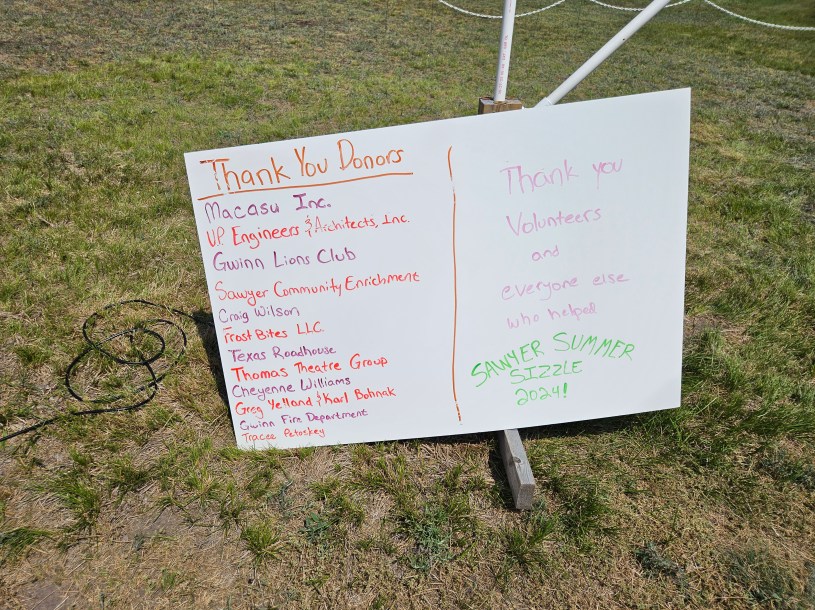 Thank You Donors
Macasu Inc.
U.P. Engineers & Architects, Inc.
Gwinn Lions Club
Sawyer Community Enrichment
Craig Wilson
Frost Bites LLC
Texas Roadhouse
Thomas Theatre Group
Cheyenne Williams
Greg Yelland & Karl Bohnak
Gwinn Fire Department
Petoskey
Thank you
Volunteers
and
everyone else
who helped
SAWYER SUMMER
SIZZLE
2024!